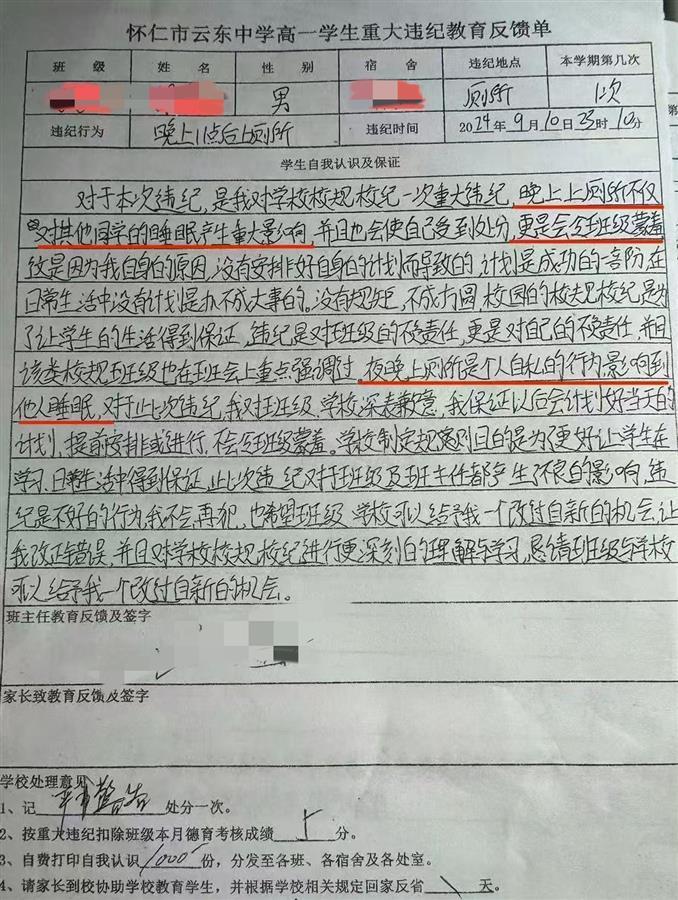 怀仁市云东中学高一学生重大违纪教育反馈单
班 级 姓 名 性 别 宿 舍 违纪地点 本学期第几次
男 厕所 1次
违纪行为 晚上11点后上厕所 违纪时间 2024年9月10日23时10分
学生自我认识及保证
对于本次违纪,是我对学校校规校纪一次重大违纪,晚上上厕所不仅
对其他同学的睡眠产生重大影响,并且也会使自己受到处分,更是会令班级蒙羞
这是因为我自身的原因,没有安排好自身的计划而导致的,计划是成功的一部份,在
日常生活中没有计划是办不成大事的。没有规矩,不成方圆,校园的校规校纪,是为
了让学生的生活得到保证,违纪是对班级的不负责任,更是对自己的不负责任,并且
该类校规班级也在班会上重点强调过,夜晚上厕所是个人自私的行为,影响到
他人睡眠,对于此次违纪,我对班级、学校深表歉意,我保证以后会计划好当天的
计划,提前安排或进行,不会令班级蒙羞。学校制定规则目的是为了更好让学生在
学习、日常生活中得到保证,此次违纪对于班级及班主任都产生了不良的影响,违
纪是不好的行为,我不会再犯,也希望班级、学校可以给予我一个改过自新的机会,让
我改正错误,并且对学校校规、校纪进行更深刻的理解与学习,恳请班级与学校
可以给予我一个改过自新的机会。
班主任教育反馈及签字
家长致教育反馈及签字
学校处理意见
1、记 严重警告 处分一次。
2、按重大违纪扣除班级本月德育考核成绩 分。
3、自费打印自我认识 1000 份,分发至各班、各宿舍及各处室。
4、请家长到校协助学校教育学生,并根据学校相关规定回家反省 \ 天。